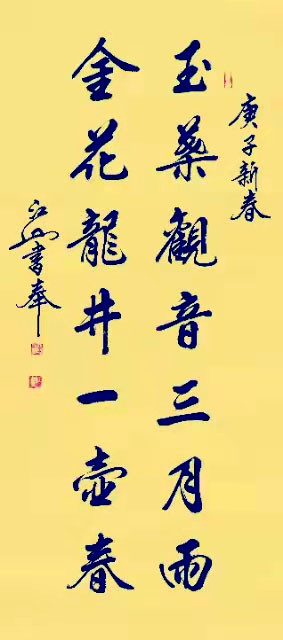 庚子新春
玉葉觀音三月雨
金花龍井一壺春
江山書奉